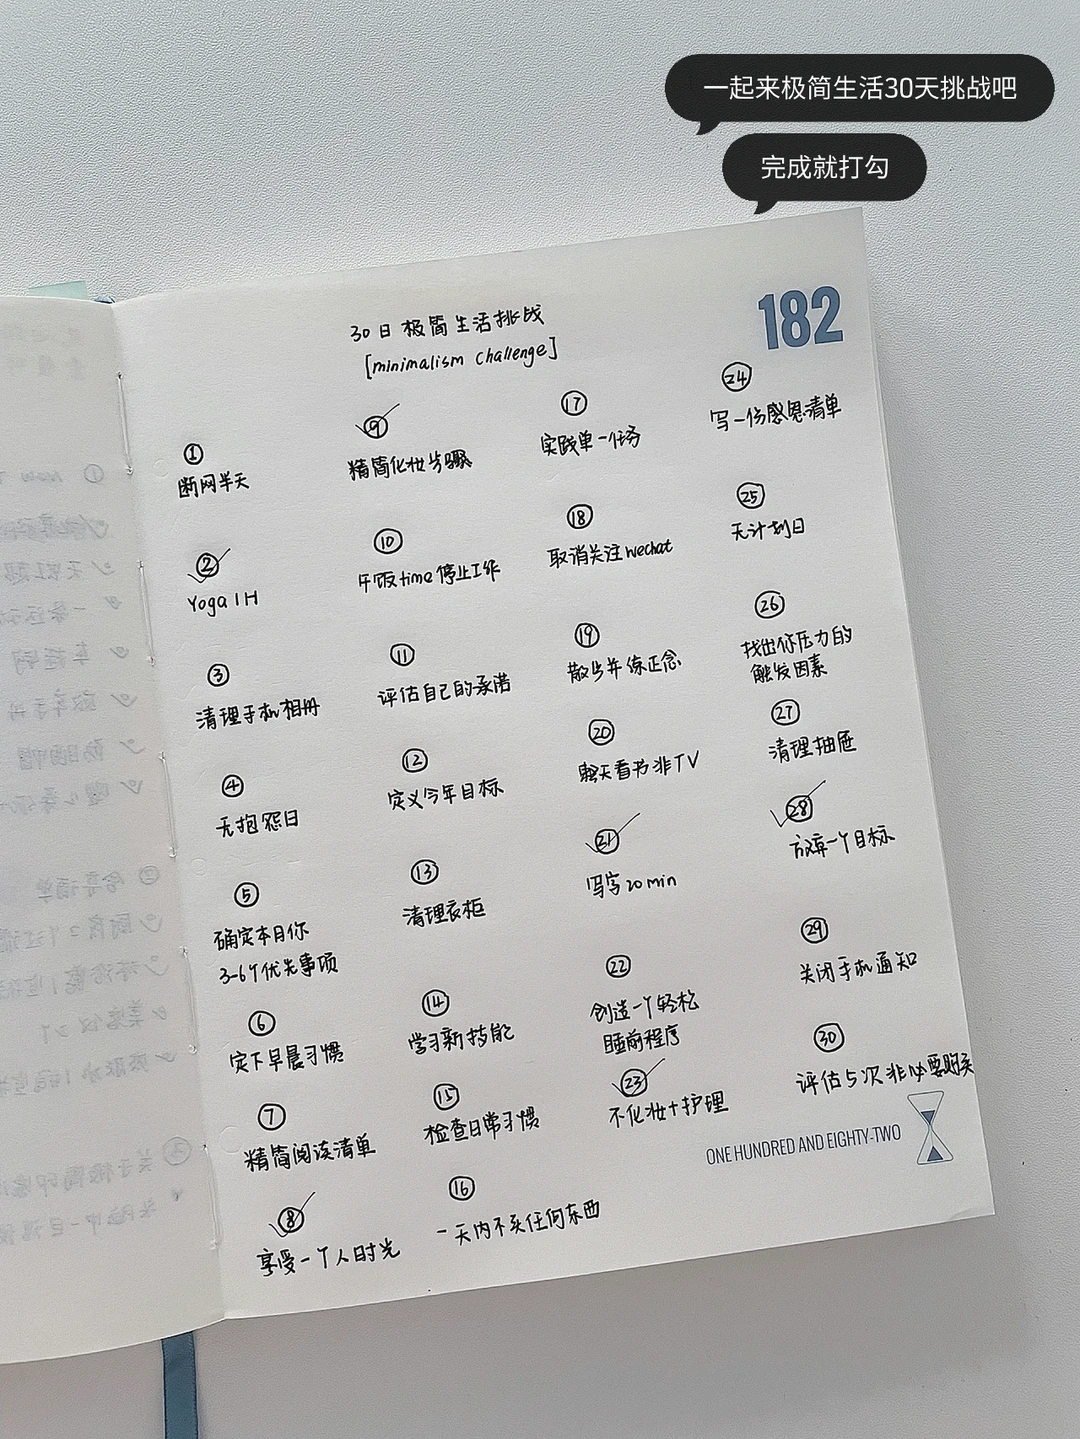 一起来极简生活30天挑战吧
完成就打勾
182
30日极简生活挑战
[minimalism challenge]
①
断网半天
②
Yoga 1H
③
清理手机相册
④
无抱怨日
⑤
确定本月你
3-6个优先事项
⑥
定下早晨习惯
⑦
精简阅读清单
⑧
享受一个人时光
⑨
精简化妆步骤
⑩
午饭time停止工作
⑪
评估自己的承诺
⑫
定义今年目标
⑬
清理衣柜
⑭
学习新技能
⑮
检查日常习惯
⑯
一天内不买任何东西
⑰
实践单一任务
⑱
取消关注wechat
⑲
散步并练正念
⑳
聊天看书非TV
㉑
写字20min
㉒
创造一个轻松
睡前程序
㉓
不化妆+护理
㉔
写一份感恩清单
㉕
无计划日
㉖
找出你压力的
触发因素
㉗
清理抽屉
㉘
放弃一个目标
㉙
关闭手机通知
㉚
评估5次非必要购买
ONE HUNDRED AND EIGHTY-TWO